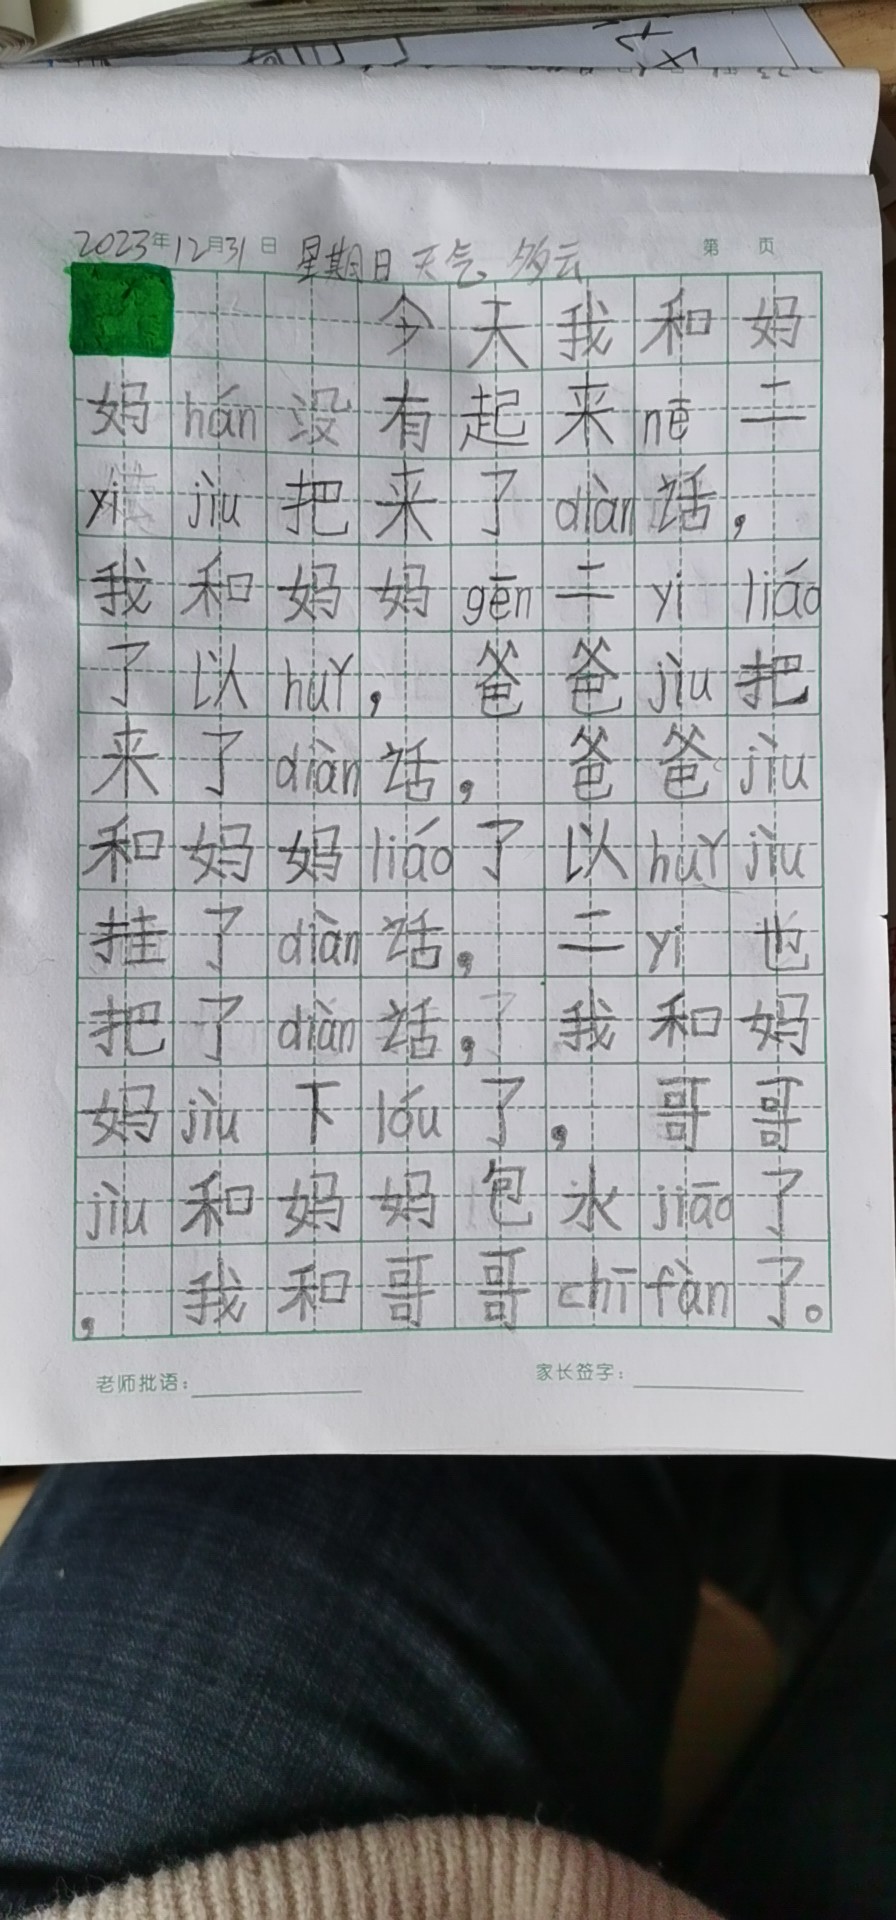 2023年12月31日 星期日 天气 多云
第 页
今天我和妈
妈hán没有起来nē二
yi jìu把来了diàn话，
我和妈妈gēn二yi liáo
了以huǐ，爸爸jìu把
来了diàn话，爸爸jìu
和妈妈liáo了以huǐ jìu
挂了diàn话，二yi也
把了diàn话，我和妈
妈jìu下lóu了，哥哥
jìu和妈妈包水jiāo了
，我和哥哥chī fàn了。
老师批语： 家长签字：